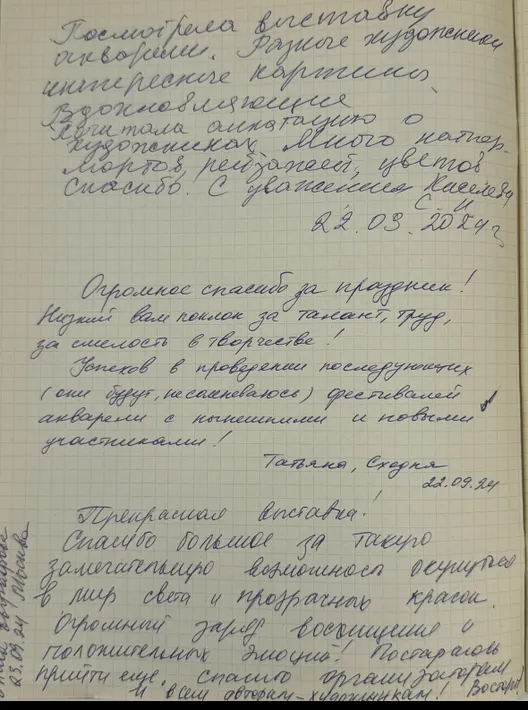 Посмотрела выставку
акварели. Разные художники
интересные картины
Вдохновляющие
Почитала аннотацию о
художниках. Много натюр-
мортов, пейзажей, цветов
Спасибо. С уважением Киселева
С. И
22.03.2024г.
Огромное спасибо за праздник!
Низкий вам поклон за талант, труд,
за смелость в творчестве!
Успехов в проведении последующих
(они будут, не сомневаюсь) фестивалей
акварели с нынешними и новыми
участниками!
Татьяна, Сходня
22.09.24
Прекрасная выставка!
Спасибо большое за такую
замечательную возможность окунуться
в мир света и прозрачных красок.
Огромный заряд восхищения и
положительных эмоций! Постараюсь
прийти еще. Спасибо организаторам
и всем авторам-художникам! Восторг!
23.09.24 Москва